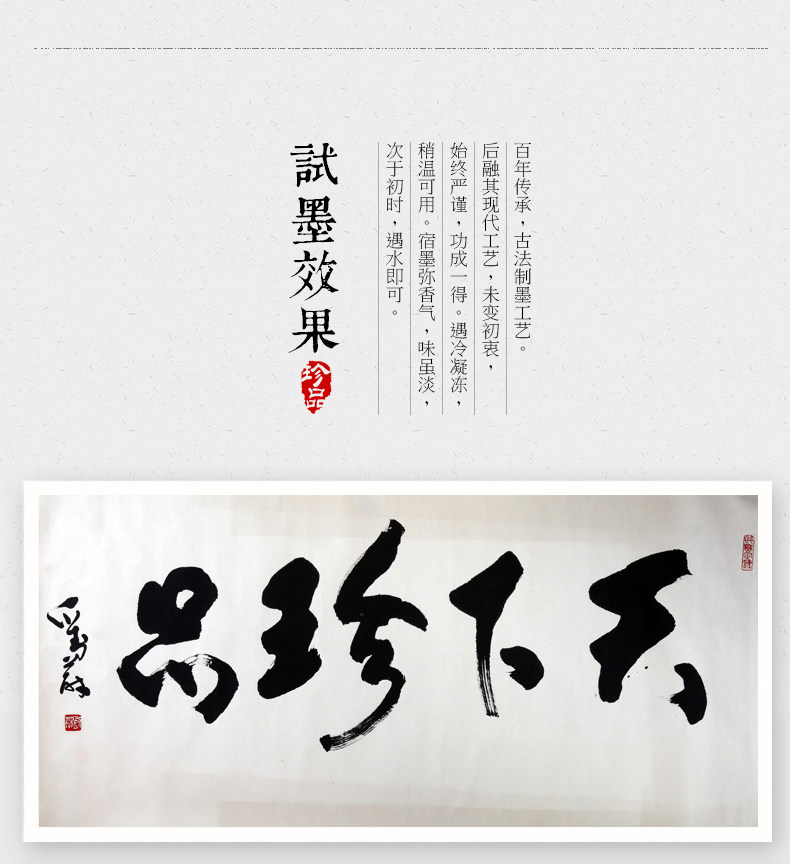 百年传承，古法制墨工艺。
后融其现代工艺，未变初衷，
始终严谨，功成一得。遇冷凝冻，
稍温可用。宿墨弥香气，味虽淡，
次于初时，遇水即可。
試墨效果
珍品
天下珍品